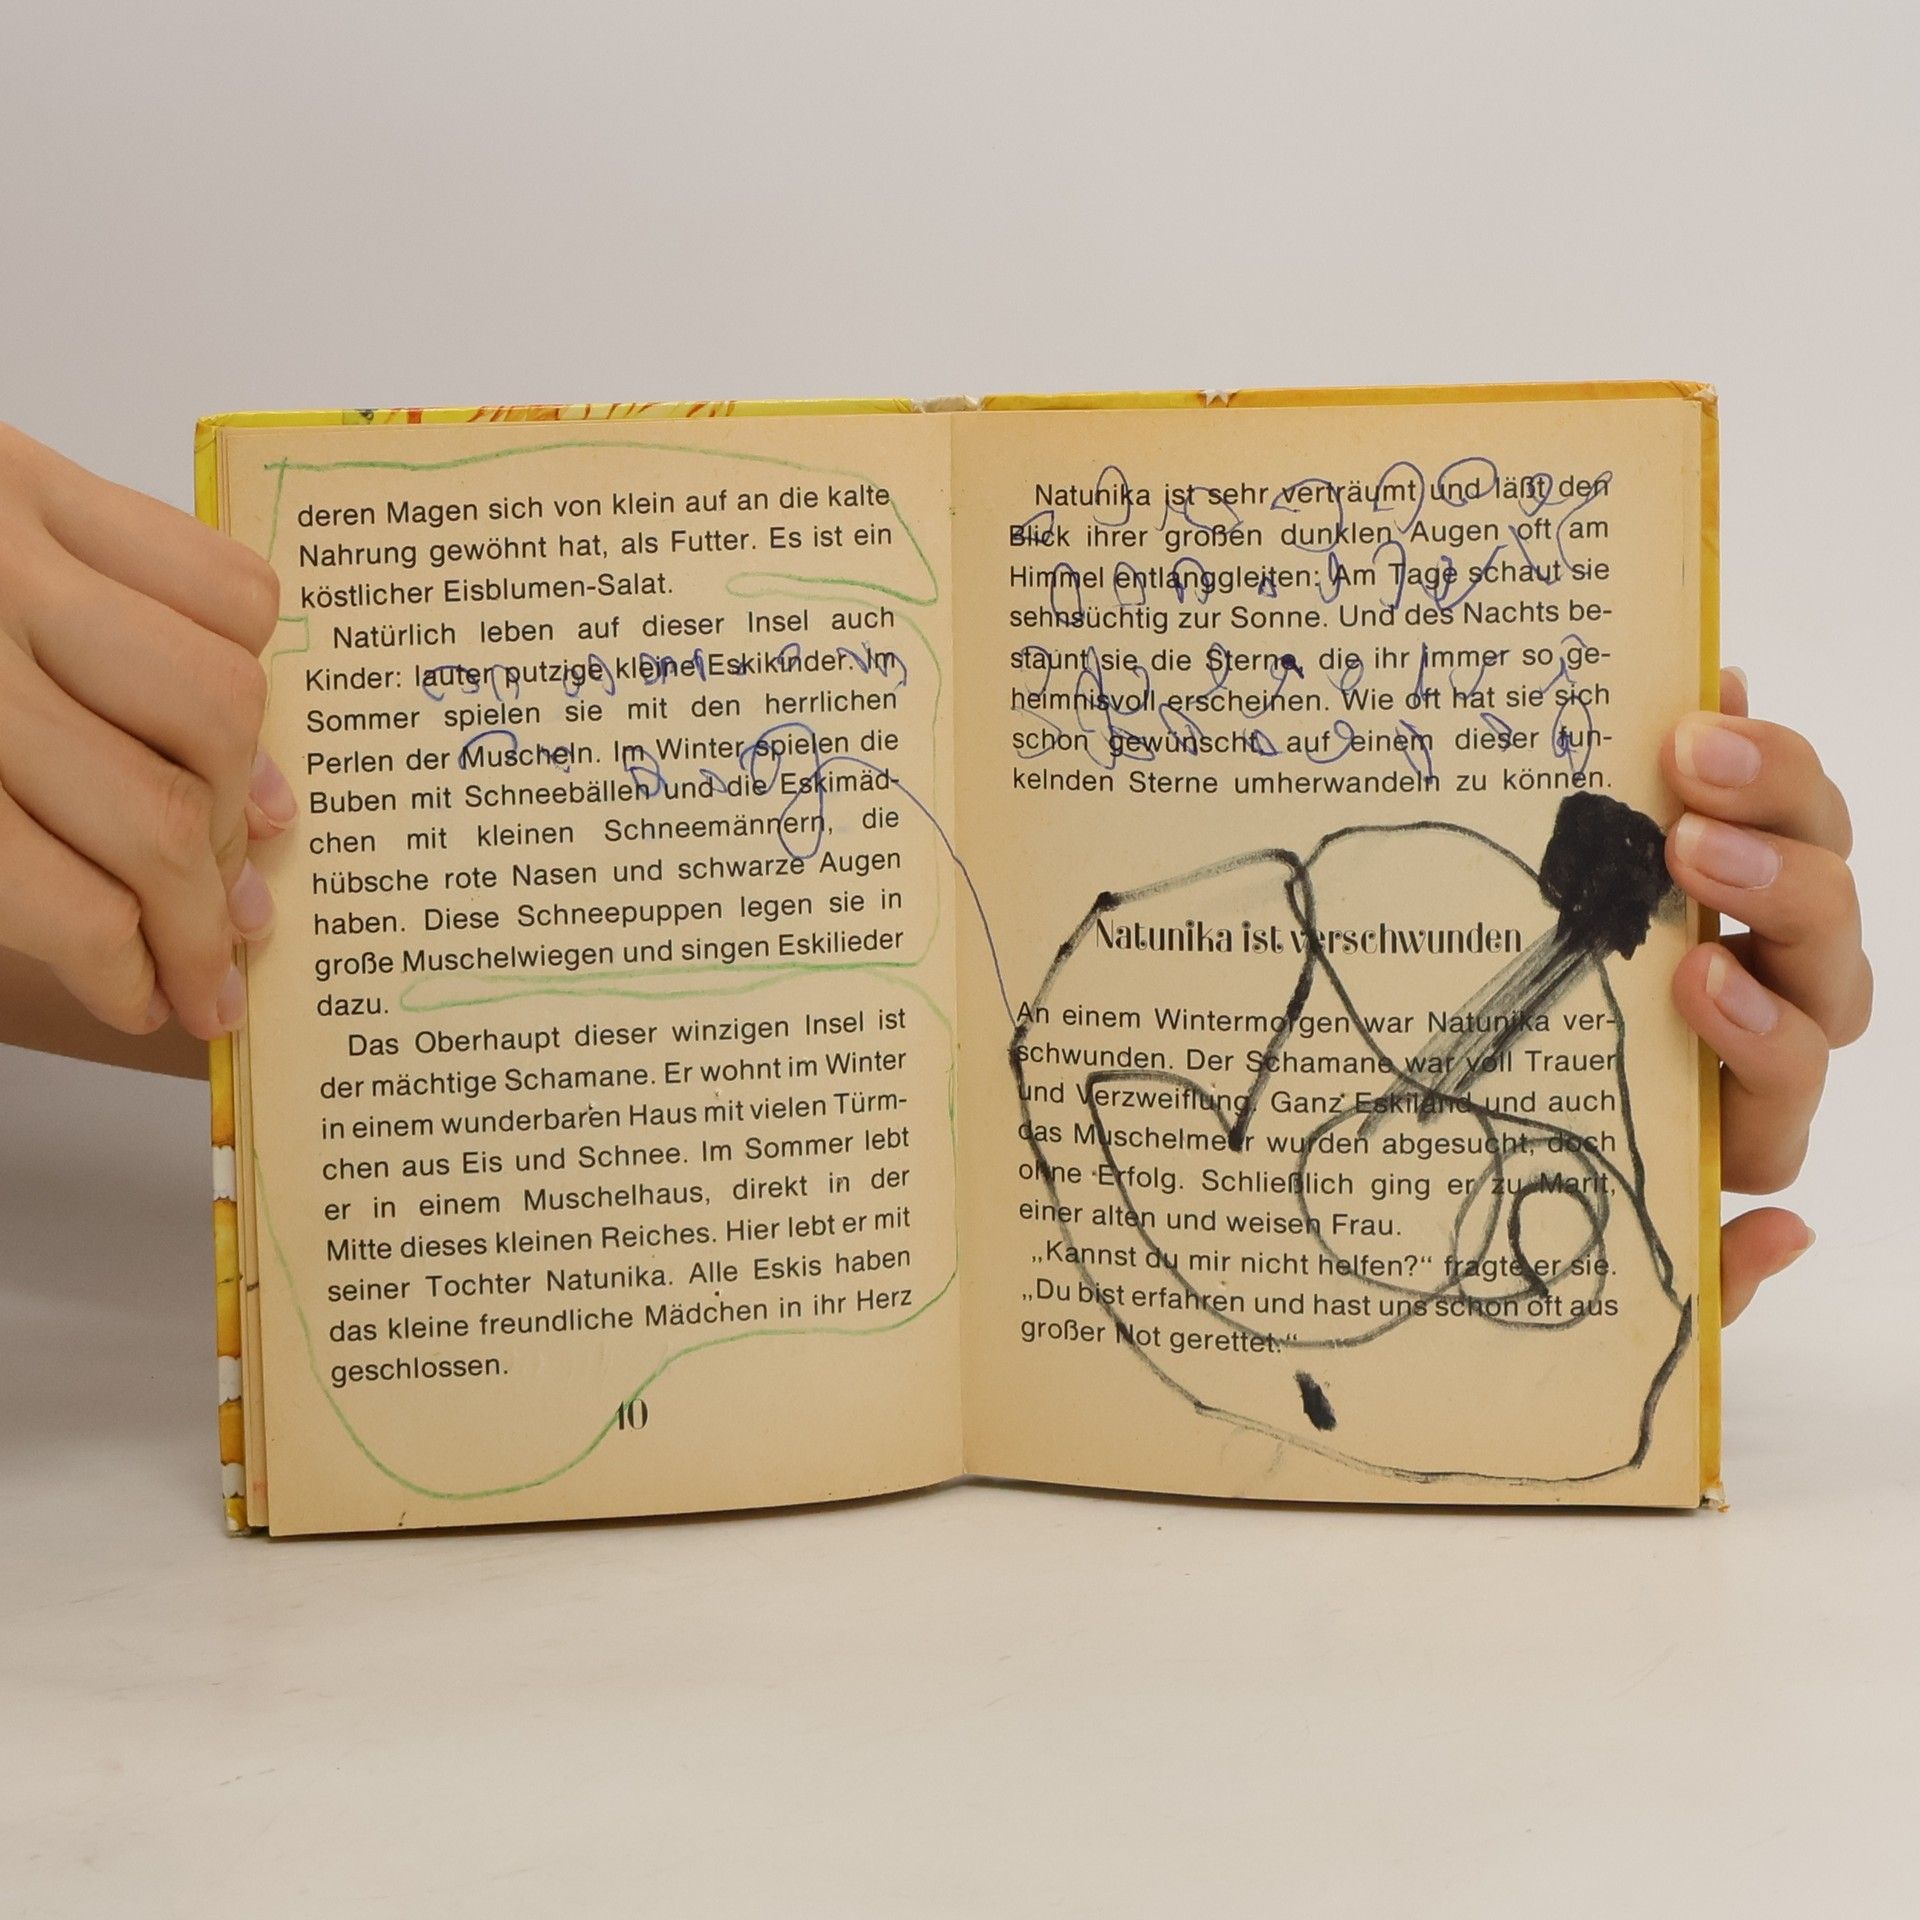 deren Magen sich von klein auf an die kalte
Nahrung gewöhnt hat, als Futter. Es ist ein
köstlicher Eisblumen-Salat.
Natürlich leben auf dieser Insel auch
Kinder: lauter putzige kleine Eskikinder. Im
Sommer spielen sie mit den herrlichen
Perlen der Muscheln. Im Winter spielen die
Buben mit Schneebällen und die Eskimäd-
chen mit kleinen Schneemännern, die
hübsche rote Nasen und schwarze Augen
haben. Diese Schneepuppen legen sie in
große Muschelwiegen und singen Eskilieder
dazu.
Das Oberhaupt dieser winzigen Insel ist
der mächtige Schamane. Er wohnt im Winter
in einem wunderbaren Haus mit vielen Türm-
chen aus Eis und Schnee. Im Sommer lebt
er in einem Muschelhaus, direkt in der
Mitte dieses kleinen Reiches. Hier lebt er mit
seiner Tochter Natunika. Alle Eskis haben
das kleine freundliche Mädchen in ihr Herz
geschlossen.
10
Natunika ist sehr verträumt und läßt den
Blick ihrer großen dunklen Augen oft am
Himmel entlanggleiten: Am Tage schaut sie
sehnsüchtig zur Sonne. Und des Nachts be-
staunt sie die Sterne, die ihr immer so ge-
heimnisvoll erscheinen. Wie oft hat sie sich
schon gewünscht, auf einem dieser fun-
kelnden Sterne umherwandeln zu können.
Natunika ist verschwunden
An einem Wintermorgen war Natunika ver-
schwunden. Der Schamane war voll Trauer
und Verzweiflung. Ganz Eskiland und auch
das Muschelmeer wurden abgesucht, doch
ohne Erfolg. Schließlich ging er zu Marit,
einer alten und weisen Frau.
„Kannst du mir nicht helfen?“ fragte er sie.
„Du bist erfahren und hast uns schon oft aus
großer Not gerettet.“